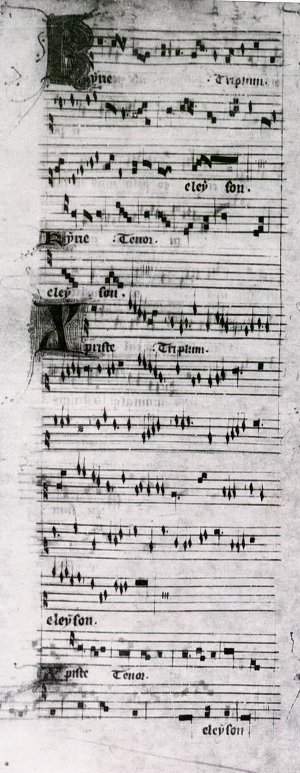 Kyrie Triplum.
eley son.
Kyrie Tenor.
eley son.
Xpriste Triplum.
eleyson.
Xpiste Tenor.
eleyson